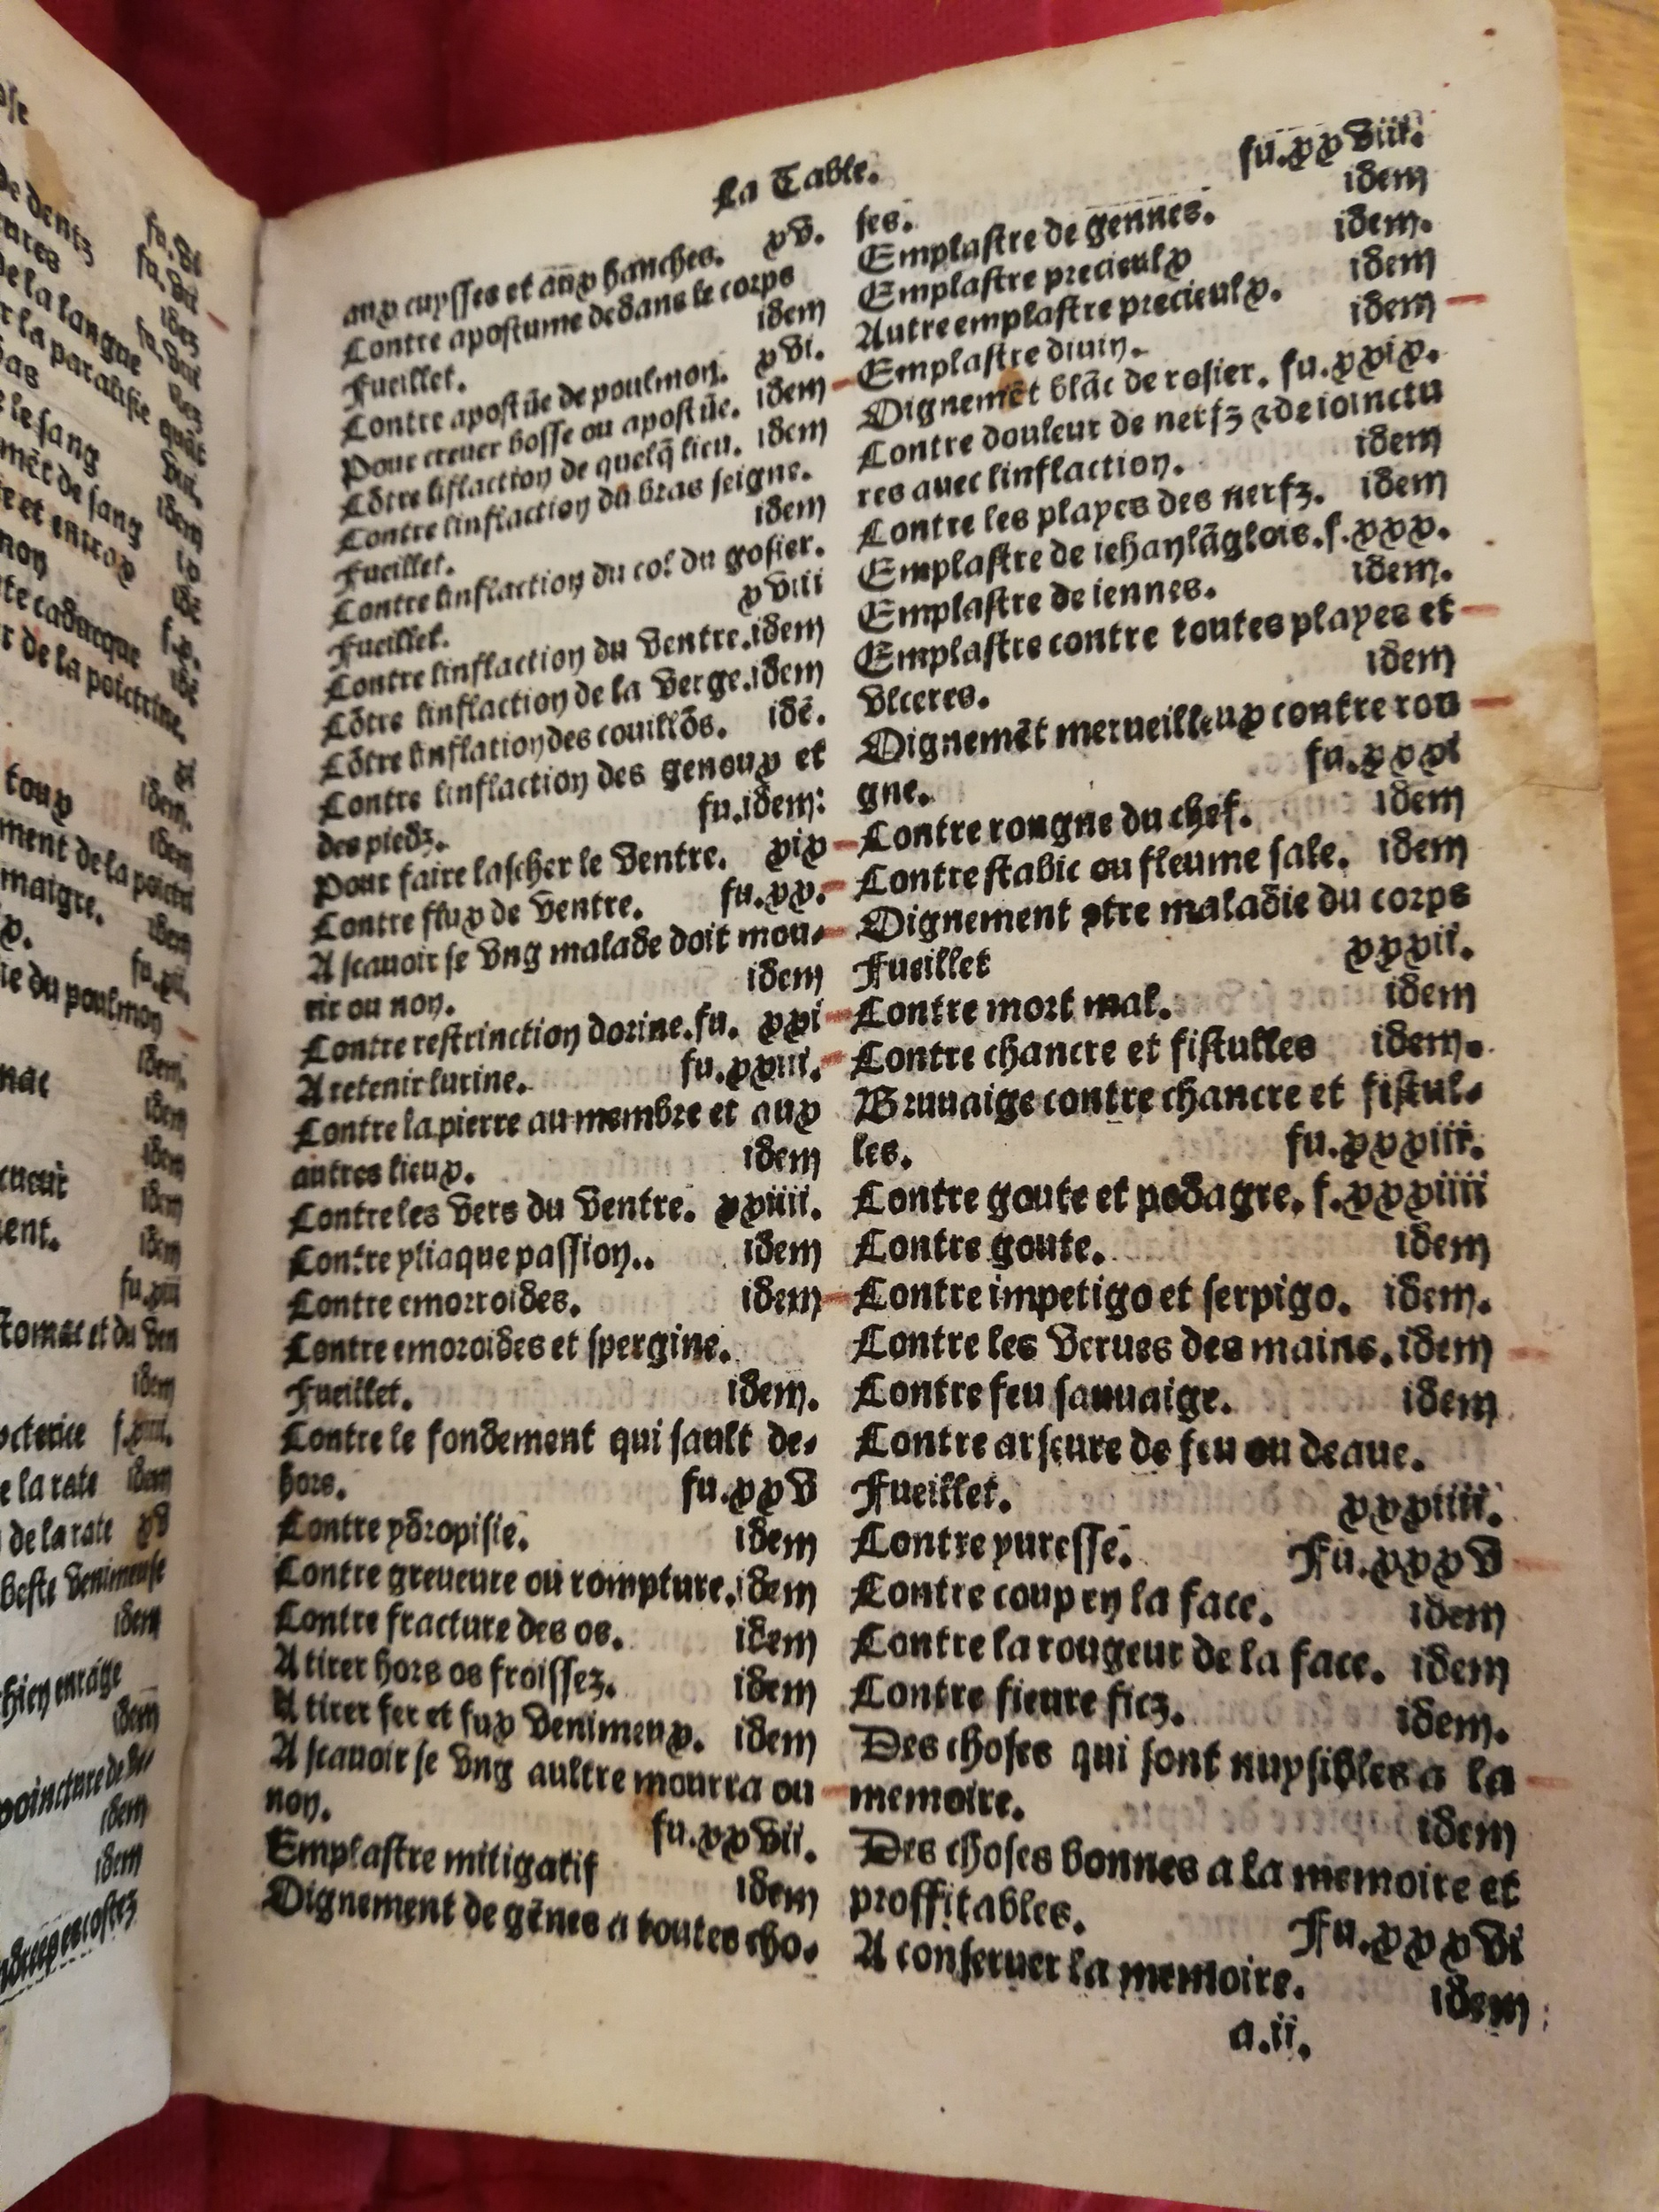 de dentz fu.vi
fu.vii
de la langue idez
r la paralisie quāt
le sang vii.
mēt de sang idem
noy idē
te caducque f.x.
r de la poictrine.
xi
toux idem.
idem
ment de la poictri
maigre. idem
fu.xii.
ie du poulmoy
idem.
idem
idem
idem
ent. idem
fu.xiii
idem
e la rate idem
de la rate xv
beste venimeuse
idem
idem
idem
idem
La Table.
aux cuysses et aux hanches. xv.
Contre apostume dedans le corps
Fueillet. idem
Contre apostūe de poulmoy. xvi.
Pour creuer bosse ou apostūe. idem
Cōtre liflaction de quelq̄ lieu. idem
Contre linflaction du bras seigne.
Fueillet. idem
Contre linflaction du col du gosier.
Fueillet. xviii
Contre linflaction du ventre. idem
Cōtre linflaction de la verge. idem
Cōtre linflation des couillōs. idē.
Contre linflaction des genoux et
des piedz. fu.idem:
Pour faire lascher le ventre. xix
Contre flux de ventre. fu.xx.
A scauoir se vng malade doit mou-
rir ou noy. idem
Contre restrinction dorine.fu. xxi
A retenir lurine. fu.xxiii.
Contre la pierre au membre et aux
autres lieux. idem
Contre les vers du ventre. xxiiii.
Contre yliaque passioy.. idem
Contre emorroides. idem
Contre emoroides et spergine.
Fueillet. idem.
Contre le fondement qui sault de-
hors. fu.xxv
Contre ydropisie. idem
Contre greueure ou rompture. idem
Contre fracture des os. idem
A tirer hors os froissez. idem
A tirer fer et fux venimeux. idem
A scauoir se vng aultre mourra ou
noy. fu.xxvii.
Emplastre mitigatif idem
Oignement de gēnes a toutes cho-
ses. fu.xxviii.
Emplastre de gennes. idem
Emplastre precieulx idem.
Autre emplastre precieulx. idem
Emplastre diuiy. idem
Oignemēt blāc de rosier. fu.xxix.
Contre douleur de nerfz ⁊ de ioinctu
res auec linflactioy. idem
Contre les playes des nerfz. idem
Emplastre de iehaylāglois.f.xxx.
Emplastre de iennes. idem.
Emplastre contre toutes playes et
vlceres. idem
Oignemēt merueilleux contre rou
gne. fu.xxxi
Contre rongne du chef. idem
Contre stabie ou fleume sale. idem
Oignement ꝯtre maladie du corps
Fueillet xxxii.
Contre mort mal. idem
Contre chancre et fistulles idem.
Bruuaige contre chancre et fistul-
les. fu.xxxiii.
Contre goute et podagre. f.xxxiiii
Contre goute. idem
Contre impetigo et serpigo. idem.
Contre les verues des mains. idem
Contre feu sauuaige. idem
Contre arseure de feu ou deaue.
Fueillet. xxxiiii.
Contre yuresse. Fu.xxxv
Contre coup ey la face. idem
Contre la rougeur de la face. idem
Contre fieure ficz. idem.
Des choses qui sont nuysibles a la
memoire. idem
Des choses bonnes a la memoire et
proffitables. Fu.xxxvi
A conseruer la memoire. idem
a.ii.